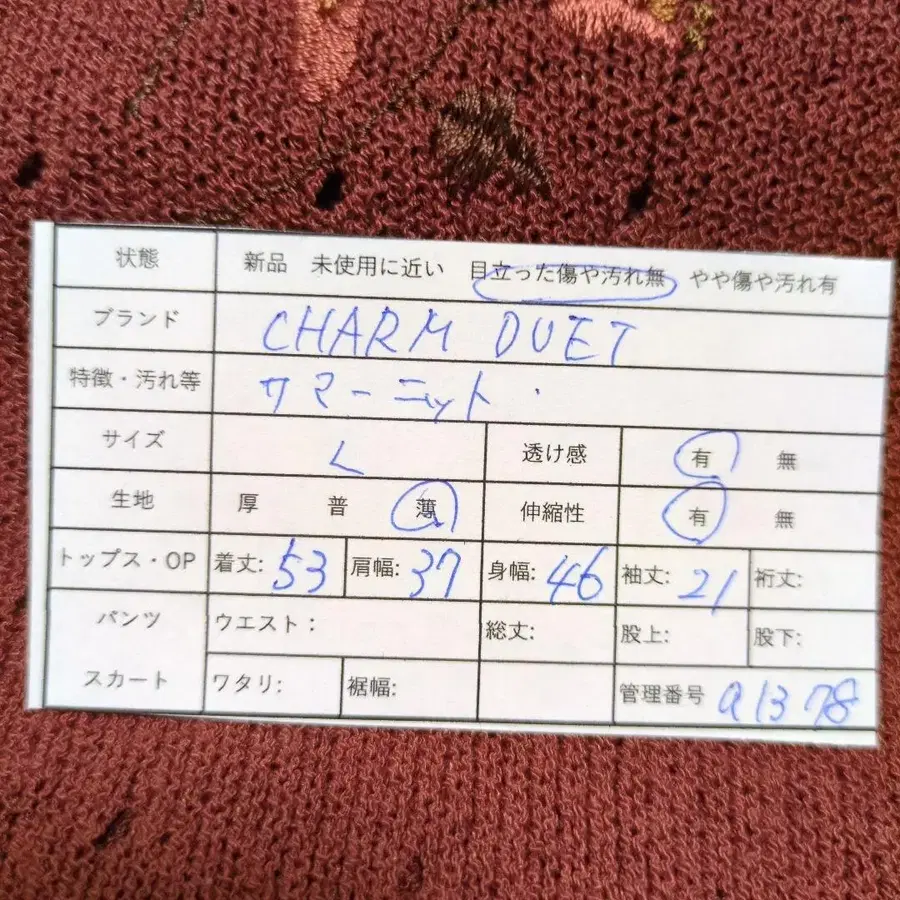 状態 新品 未使用に近い 目立った傷や汚れ無 やや傷や汚れ有
ブランド CHARM DUET
特徴・汚れ等 サマーニット
サイズ L 透け感 有 無
生地 厚 普 薄 伸縮性 有 無
トップス・OP 着丈: 53 肩幅: 37 身幅: 46 袖丈: 21 裄丈:
パンツ ウエスト: 総丈: 股上: 股下:
スカート ワタリ: 裾幅: 管理番号 a1378